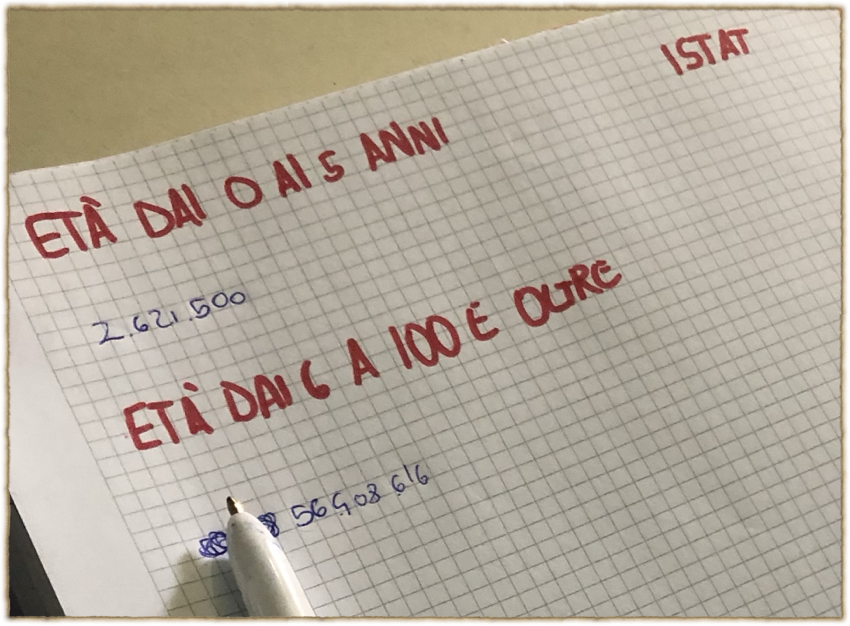 ISTAT
ETÀ DAI 0 AI 5 ANNI
2.621.500
ETÀ DAI 6 A 100 E OLTRE
56408 616